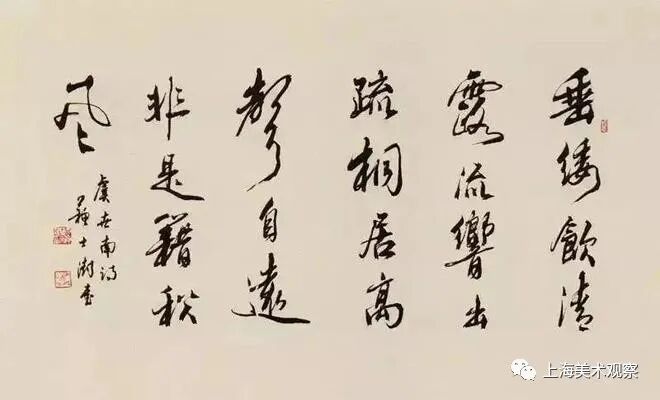 垂緌飲清
露流響出
疏桐居高
聲自遠
非是籍秋
風
虞世南詩
蘇士澍書
上海美术观察